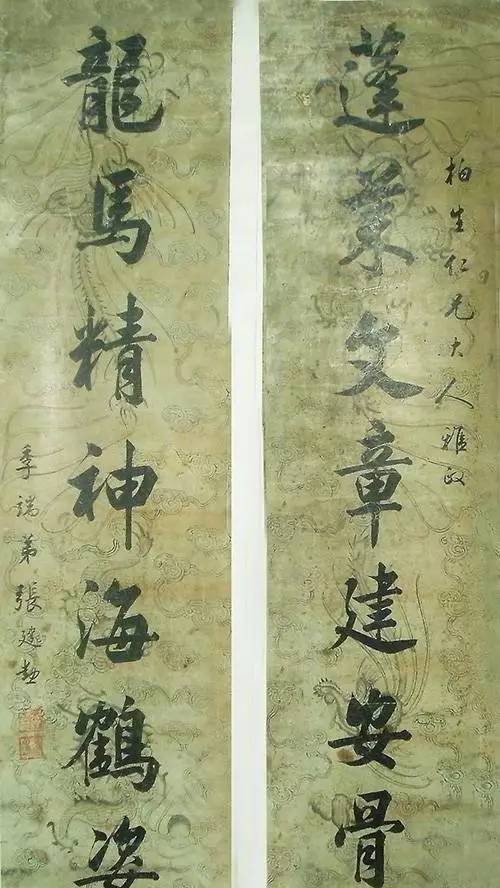 柏生仁兄大人雅政
蓬萊文章建安骨
龍馬精神海鶴姿
季端弟張建勳